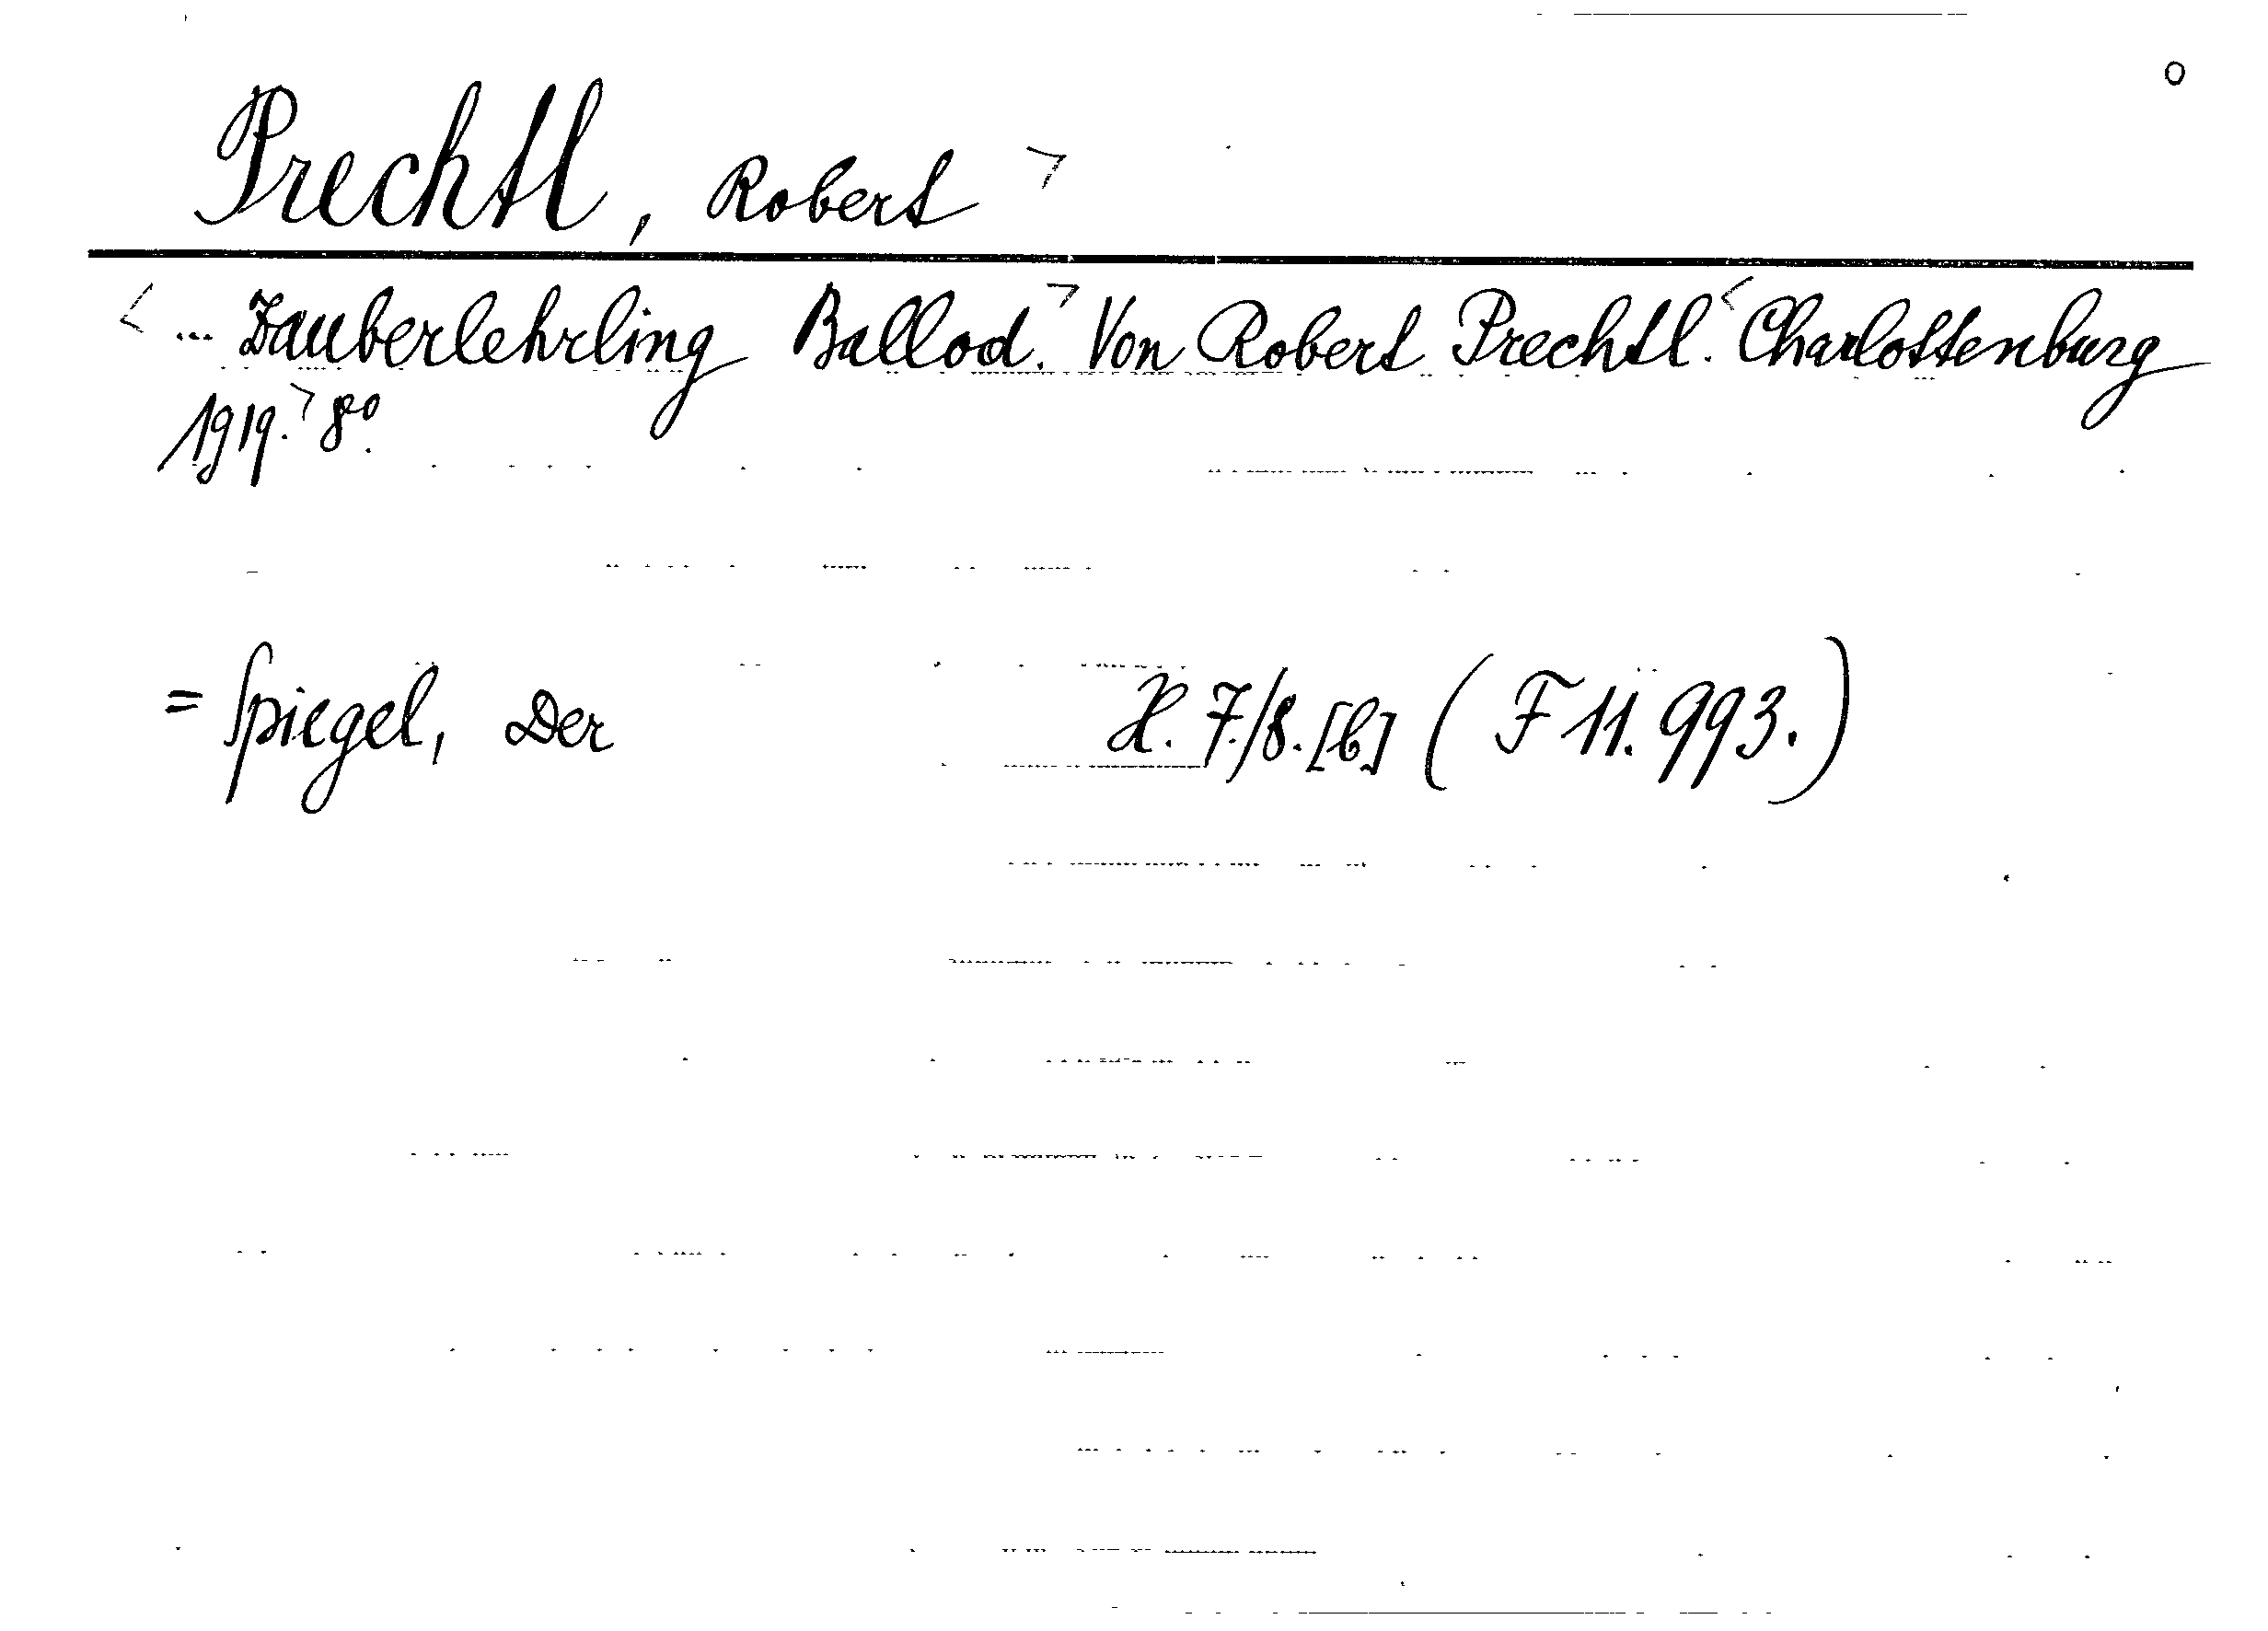 Prechtl, Robert ⌝
< ... Zauberlehrling Ballod.⌝ Von Robert Prechtl.< Charlottenburg
1919.⌝ 8º.
= Spiegel, Der H. 7./8. [b] ( F 11. 993. )